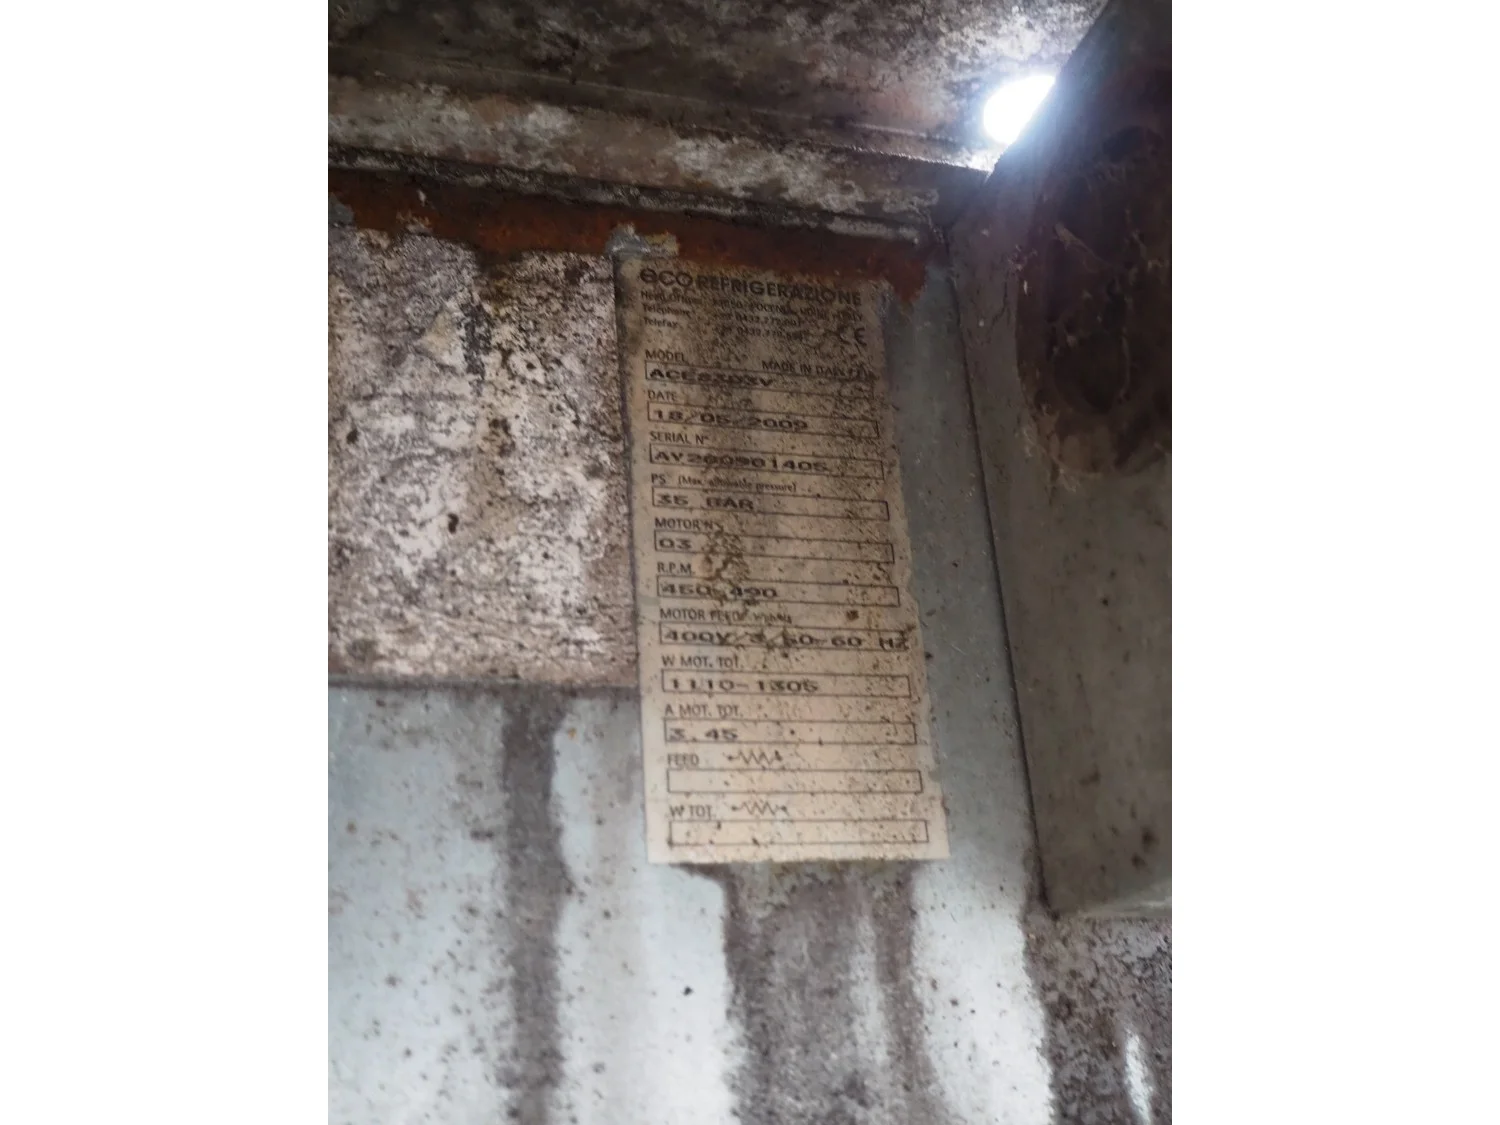 eco REFRIGERAZIONE
Head Office: POCENIA UDINE ITALY
Telephone 0432.779.
Telefax 0432.779.
CE
MODEL MADE IN ITALY
DATE
18/05/2009
SERIAL N°
AV200901405
PS (Max. allowable pressure)
35 BAR
MOTOR N°
03
R.P.M.
450-490
MOTOR FEED
400V/3/50-60 HZ
W MOT. TOT.
1110-1305
A MOT. TOT.
3.45
FEED
W TOT.